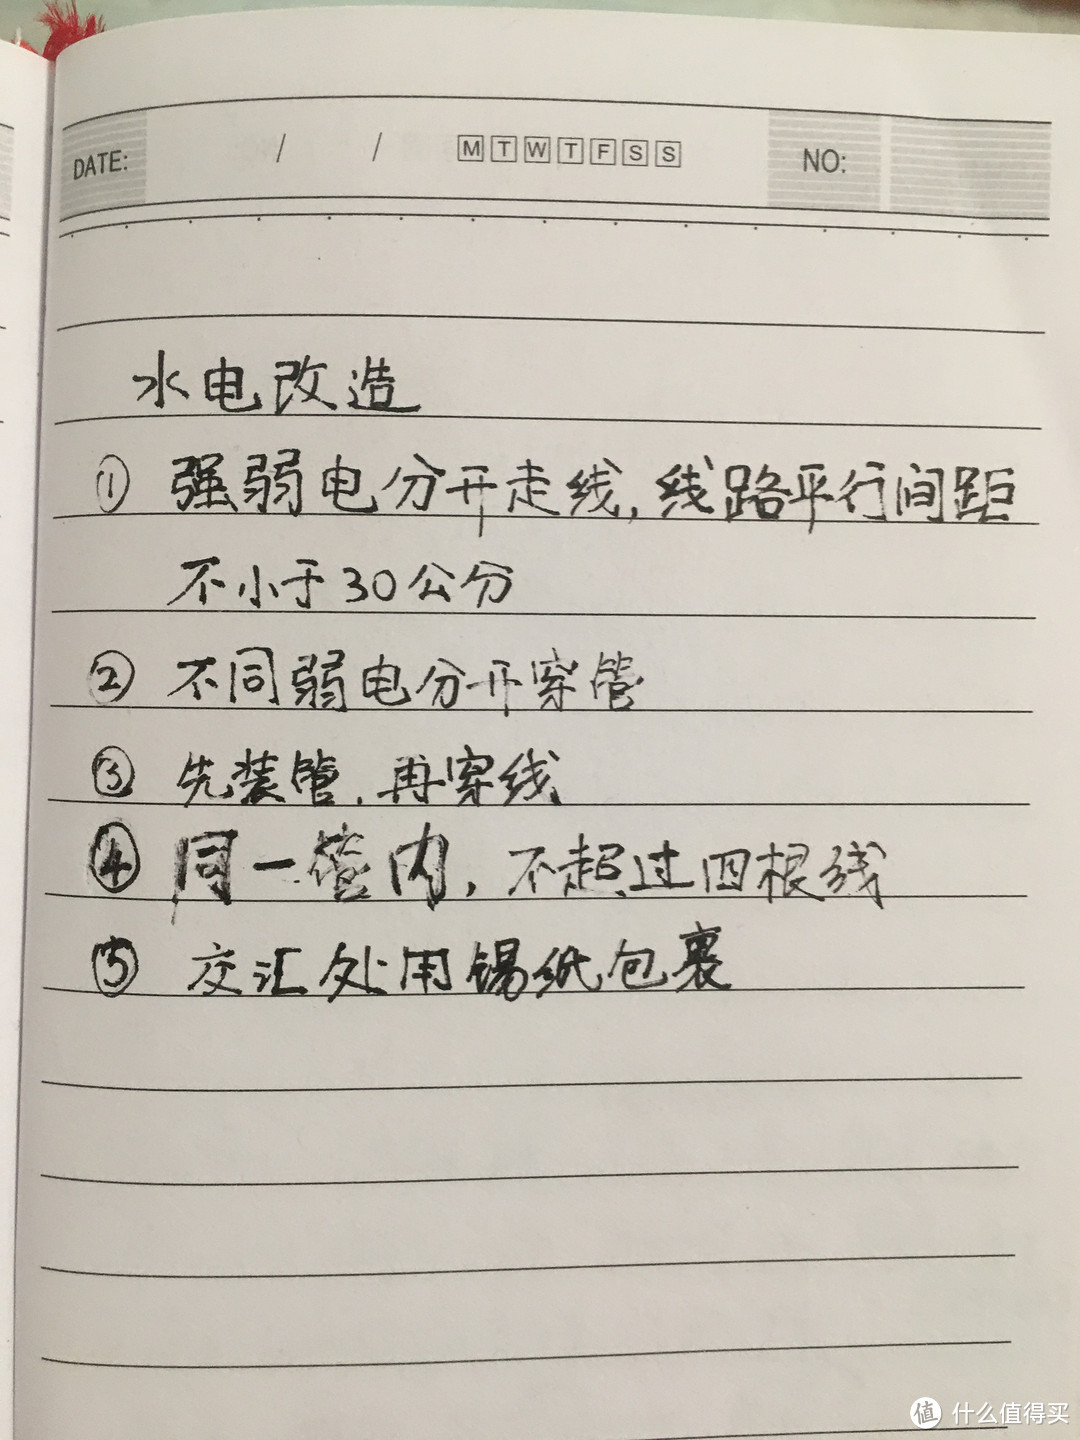 DATE: / / M T W T F S S NO:
水电改造
① 强弱电分开走线,线路平行间距
不小于30公分
② 不同弱电分开穿管
③ 先装管,再穿线
④ 同一管内,不超过四根线
⑤ 交汇处用锡纸包裹
值 什么值得买